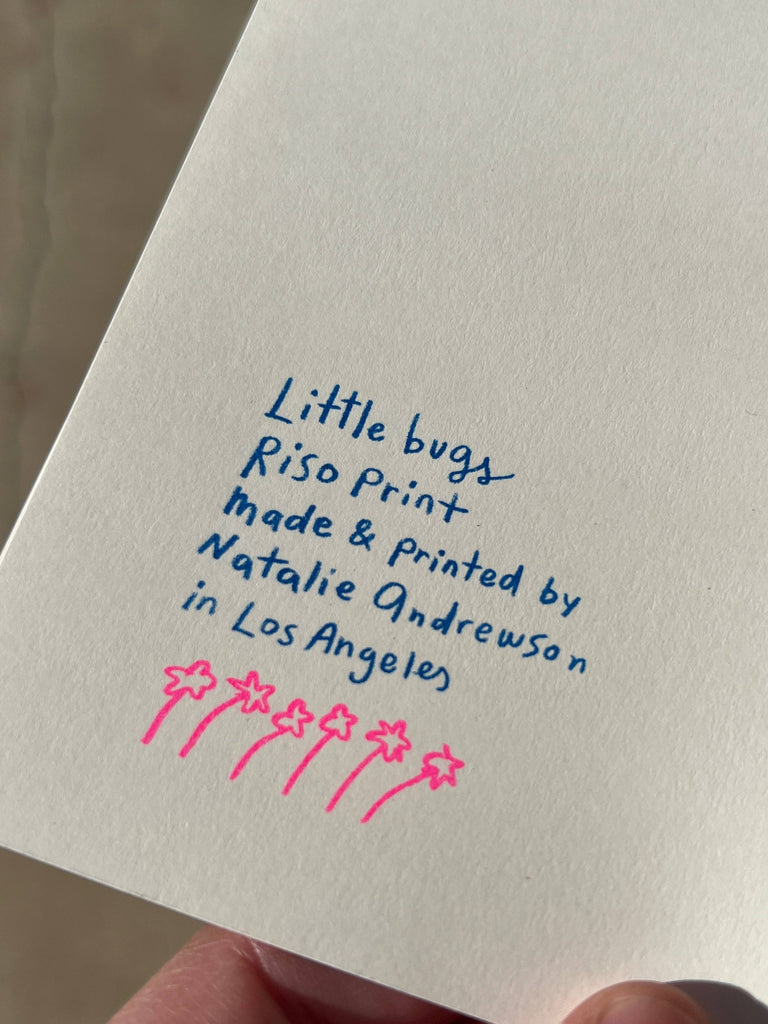 Little bugs
Riso Print
made & printed by
Natalie Andrewson
in Los Angeles